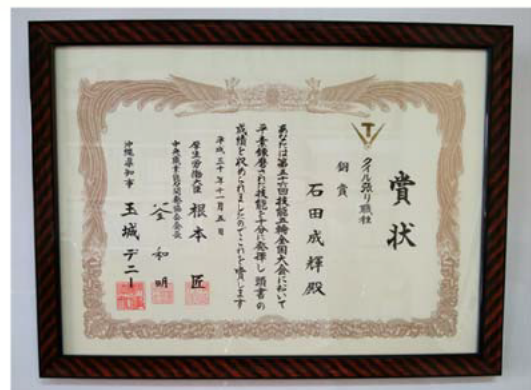 賞状
T
タイル張り職種
銅賞
石田成輝殿
あなたは第五十六回技能五輪全国大会において
平素錬磨された技能を十分に発揮し頭書の
成績を収められましたのでこれを賞します
平成三十年十一月五日
厚生労働大臣 根本匠
中央職業能力開発協会会長 釜和明
沖縄県知事 玉城デニー